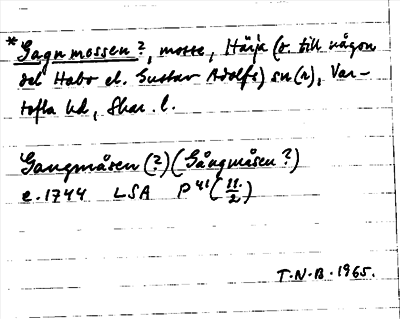 *Gagnmossen?, mosse, Härja (o. till någon
del Habo el. Gustav Adolfs) sn(r), Var-
tofta hd, Skar. l.
Gangmåsen (?) (Gångmåsen?)
e. 1744 LSA P 41 (11/2)
T.N.B. 1965.